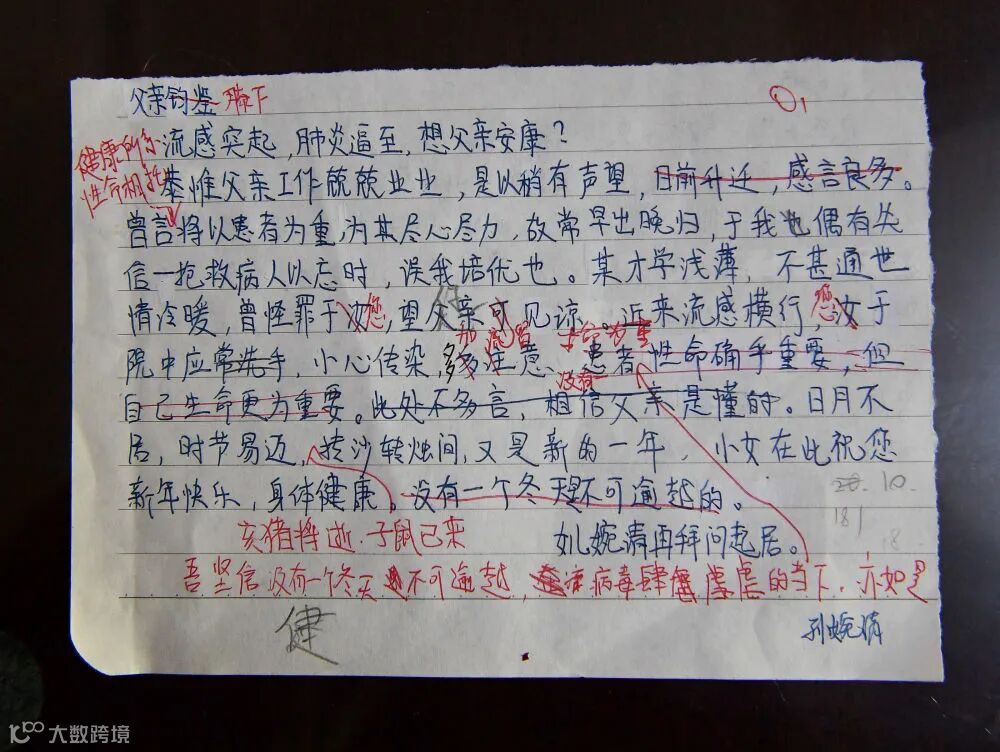 父亲钧鉴 膝下
流感突起，肺炎逼至，想父亲安康？
健康所系
性命相托
恭惟父亲工作兢兢业业，是以稍有声望，日前升迁，感言良多。
曾言将以患者为重，为其尽心尽力，故常早出晚归，于我也偶有失
信—抢救病人以忘时，误我培优也。某才学浅薄，不甚通世
情冷暖，曾怪罪于汝您，望父亲可见谅。近来流感横行，您汝于
院中应常洗手，小心传染，多多注意。患者性命确乎重要，但
自己生命更为重要。此处不多言，相信父亲是懂的。日月不
居，时节易迈，抟沙转烛间，又是新的一年，小女在此祝您
新年快乐，身体健康。没有一个冬天是不可逾越的。
10.
181
18
亥猪将逝，子鼠已来
女儿婉清再拜问起居。
吾坚信没有一个冬天不可逾越，病毒肆虐的当下，亦如是
健
孙婉清
大数跨境